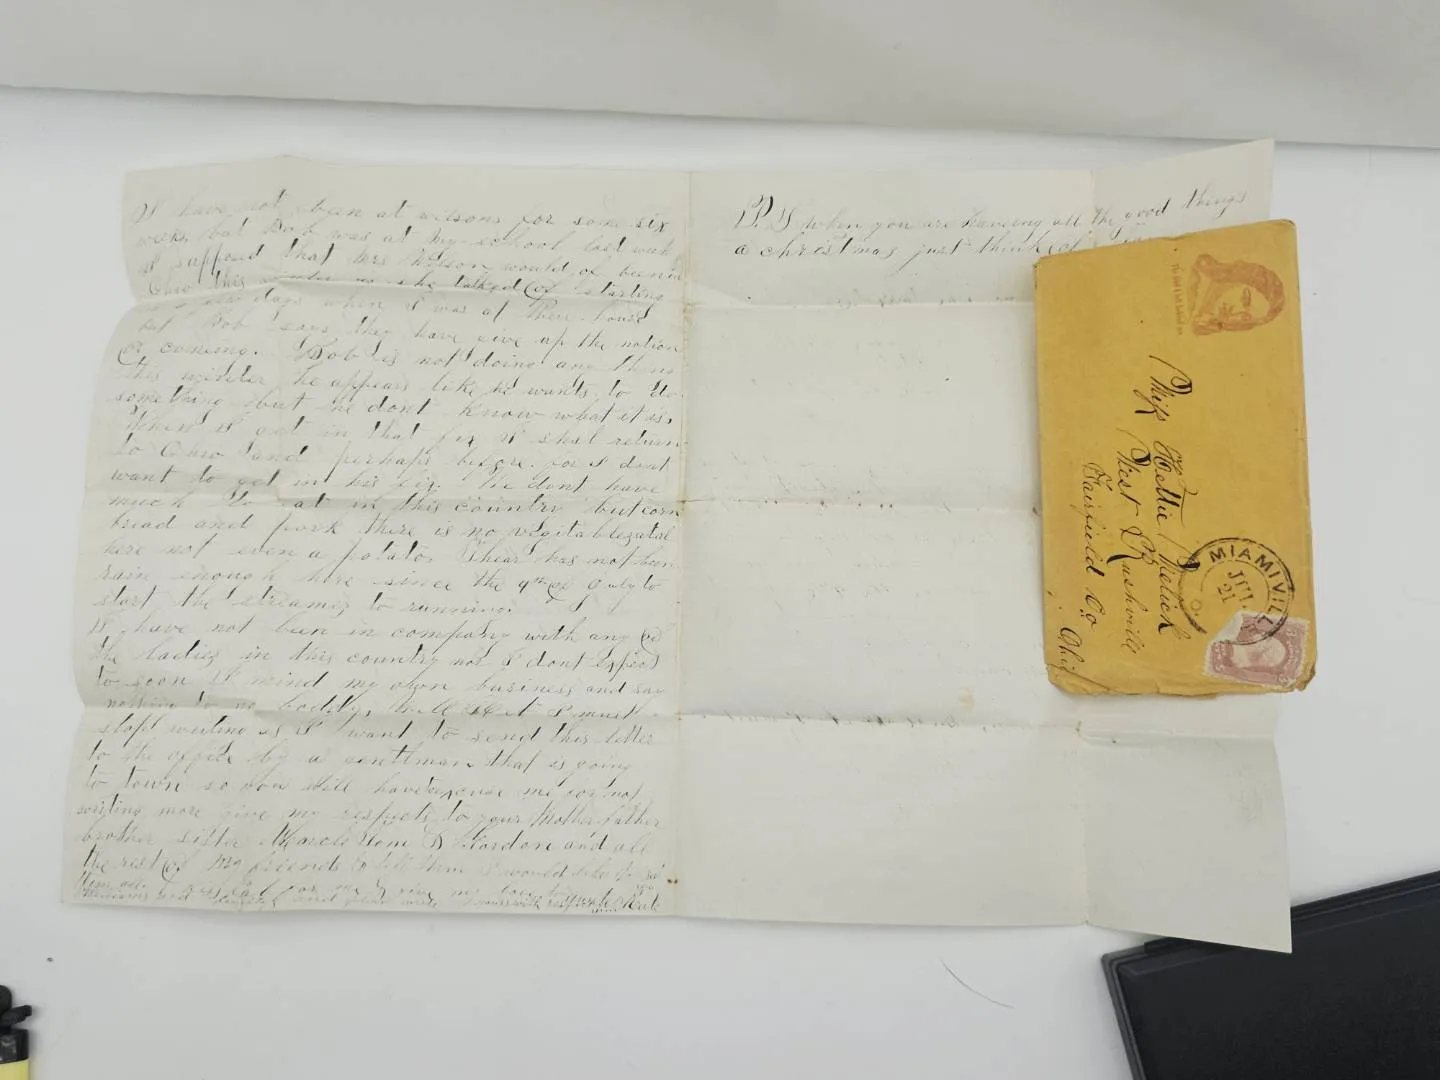 I have not been at wilsons for some six
weeks but Bob was at my school last week
I supposed that Mrs Wilson would of been in
Ohio this as she talked of starting
in a few days when I was at there house
but Bob says they have give up the notion
of coming. Bob is not doing any thing
this winter he appears like he wants to do
something but he dont know what it is,
When I get in that fix I shal return
to Ohio and perhaps before for I dont
want to get in his fix. We dont have
much to eat in this country but corn
bread and pork there is no vegitables atal
here not even a potato. Thear has not been
rain enough here since the 4th of July to
start the streames to running.
I have not been in company with any of
the Ladies in this country nor I dont expect
to soon I mind my own business and say
nothing to no boddy, Well I must
stop writing as I want to send this letter
to the office by a gentlman that is going
to town so you will have to excuse me for not
writing more give my respects to your Mother father
brother sister Uncle Tom D Gordon and all
the rest of my friends tell them I would like to see
them all. for me & give my love to
and and write Kate
P.S when you are having all the good things
a christmas just think of
Miss Hettie Melick
West Rushville
Fairfield Co
Ohio
MIAMIVILLE
21
O.